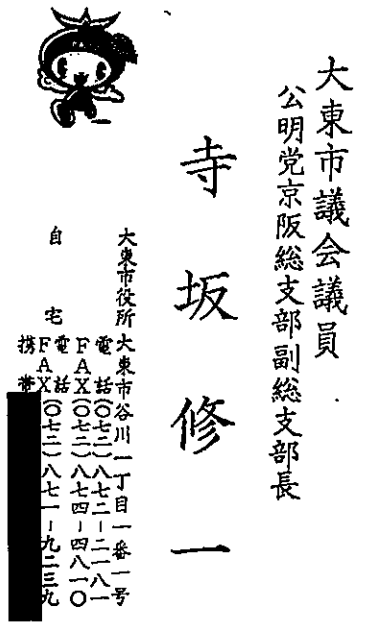 大東市議会議員
公明党京阪総支部副総支部長
寺坂修一
大東市役所 大東市谷川一丁目一番一号
電話(〇七二)八七二ー二一八一
FAX(〇七二)八七四ー四八一〇
自宅 電話
FAX(〇七二)八七一ー九二三九
携帯